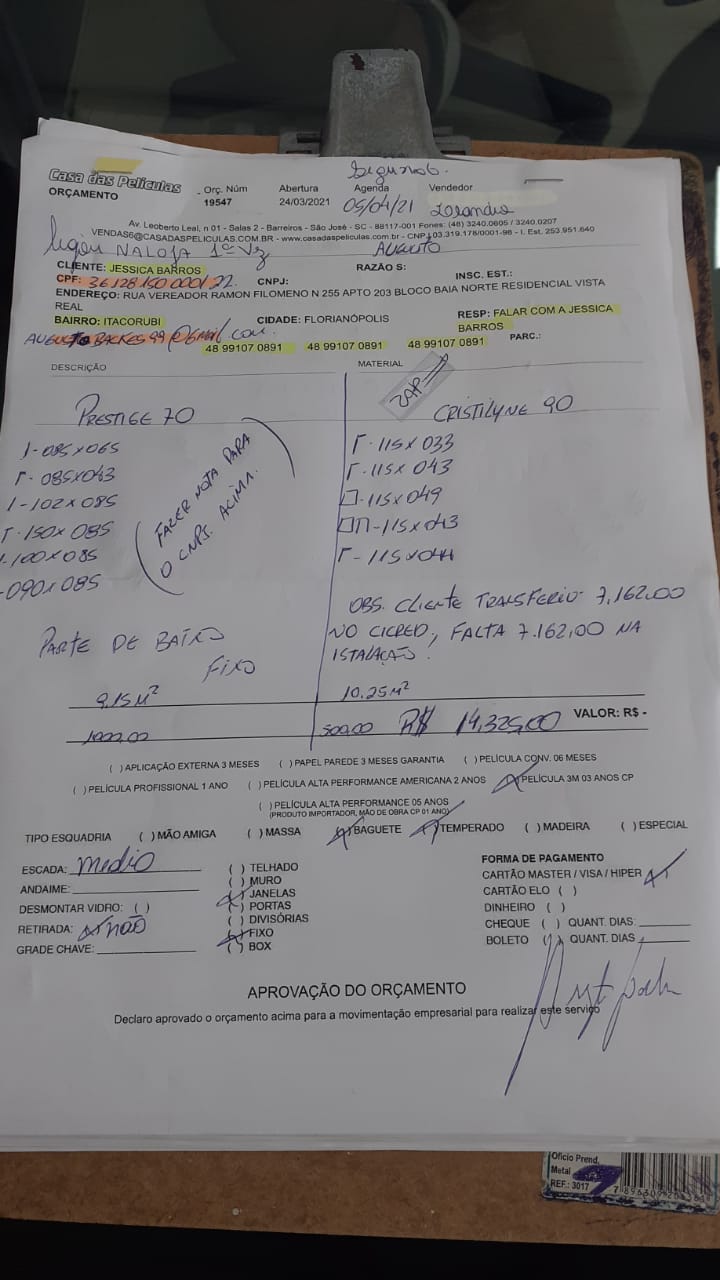 Segunda.
Casa das Películas
ORÇAMENTO
Orç. Núm Abertura Agenda Vendedor
19547 24/03/2021 05/04/21 Leandro
Av. Leoberto Leal, n 01 - Salas 2 - Barreiros - São José - SC - 88117-001 Fones: (48) 3240.0605 / 3240.0207
VENDAS6@CASADASPELICULAS.COM.BR - www.casadaspeliculas.com.br - CNPJ 03.319.178/0001-96 - I. Est. 253.951.640
NA LOJA 1ª VEZ AUGUSTO
CLIENTE: JESSICA BARROS RAZÃO S:
CPF: 36 128 150 0001/22. CNPJ: INSC. EST.:
ENDEREÇO: RUA VEREADOR RAMON FILOMENO N 255 APTO 203 BLOCO BAIA NORTE RESIDENCIAL VISTA
REAL
BAIRRO: ITACORUBI CIDADE: FLORIANÓPOLIS RESP: FALAR COM A JESSICA
BARROS
AUGUSTO BACKES 99 @ GMAIL COM.
48 99107 0891 48 99107 0891 48 99107 0891 PARC.:
DESCRIÇÃO MATERIAL
ZAP
PRESTIGE 70 CRISTILYNE 90
1-085X065
085X043
1-102X085
150X085
100X085
090X085
FAZER NOTA PARA
O CNPJ. ACIMA.
115X033
115X043
115X049
115X043
115X044
OBS. CLIENTE TRANSFERIO 7.162,00
NO CICRED, FALTA 7.162,00 NA
ISTALAÇÃO.
PARTE DE BAIXO
FIXO
9,15M² 10.25M²
1000,00 500,00 R$ 14.325,00 VALOR: R$ -
( ) APLICAÇÃO EXTERNA 3 MESES ( ) PAPEL PAREDE 3 MESES GARANTIA ( ) PELÍCULA CONV. 06 MESES
( ) PELÍCULA PROFISSIONAL 1 ANO ( ) PELÍCULA ALTA PERFORMANCE AMERICANA 2 ANOS (X) PELÍCULA 3M 03 ANOS CP
( ) PELÍCULA ALTA PERFORMANCE 05 ANOS
(PRODUTO IMPORTADOR, MÃO DE OBRA CP 01 ANO)
TIPO ESQUADRIA ( ) MÃO AMIGA ( ) MASSA (X) BAGUETE (X) TEMPERADO ( ) MADEIRA ( ) ESPECIAL
ESCADA: medio
ANDAIME:
DESMONTAR VIDRO: ( )
RETIRADA: X não
GRADE CHAVE:
( ) TELHADO
( ) MURO
(X) JANELAS
( ) PORTAS
( ) DIVISÓRIAS
(X) FIXO
( ) BOX
FORMA DE PAGAMENTO
CARTÃO MASTER / VISA / HIPER X
CARTÃO ELO ( )
DINHEIRO ( )
CHEQUE ( ) QUANT. DIAS:
BOLETO ( ) QUANT. DIAS
APROVAÇÃO DO ORÇAMENTO
Declaro aprovado o orçamento acima para a movimentação empresarial para realizar este serviço
Oficio Prend.
Metal
REF.: 3017